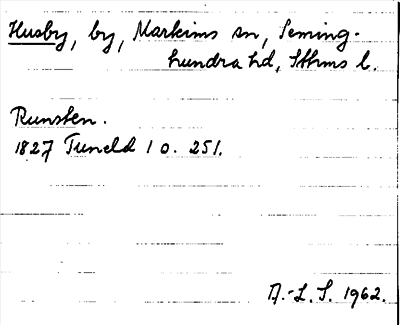 Husby, by, Markims sn, Seming-
hundra hd, Sthms l.
Runsten.
1827 Tuneld I o. 251.
A.-L. S. 1962.